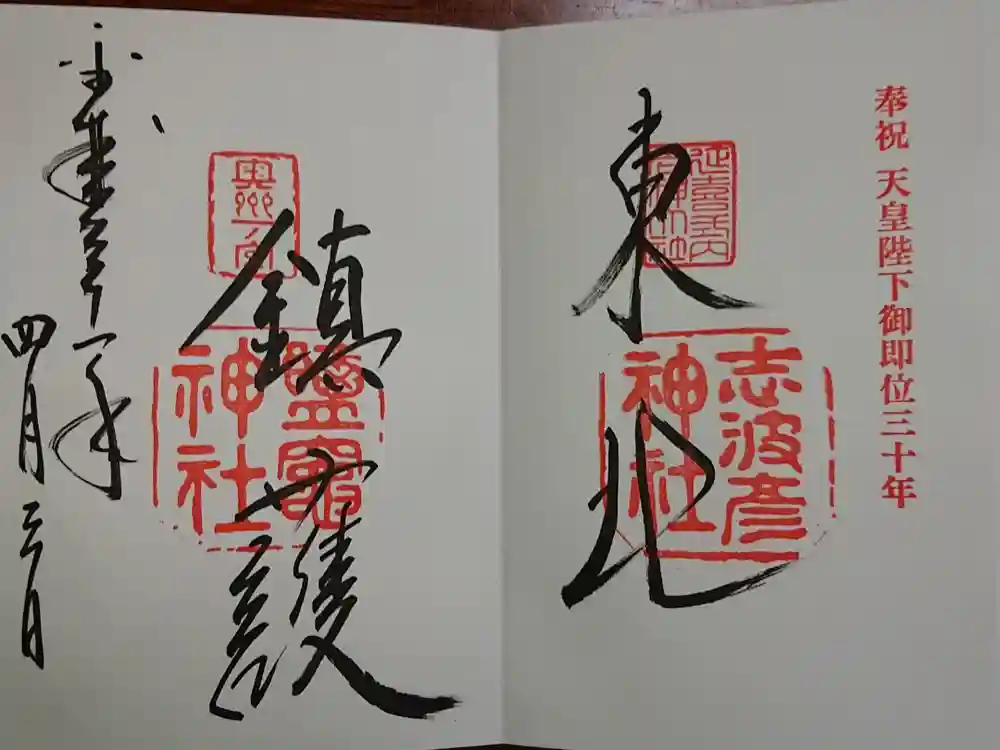 奉祝 天皇陛下御即位三十年
延喜式内
名神大社
東北
志波彦
神社
鎮護
奥州一宮
鹽竈
神社
平成三十一年
四月三日